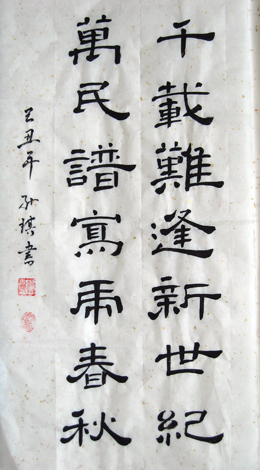 千載難逢新世紀
萬民譜寫春秋
己丑年 孙琪書